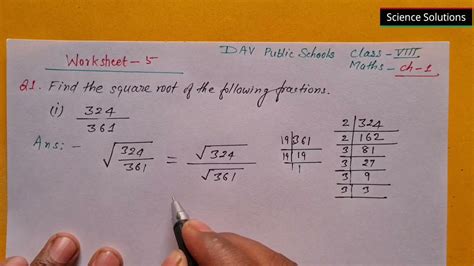 Science Solutions
DAV Public Schools Class-VIII
Worksheet-5 Maths- ch-1
Q1. Find the square root of the following fractions.
(i) 324/361
Ans:- √324/361 = √324/√361
19 | 361
19 | 19
1
2 | 324
2 | 162
3 | 81
3 | 27
3 | 9
3 | 3